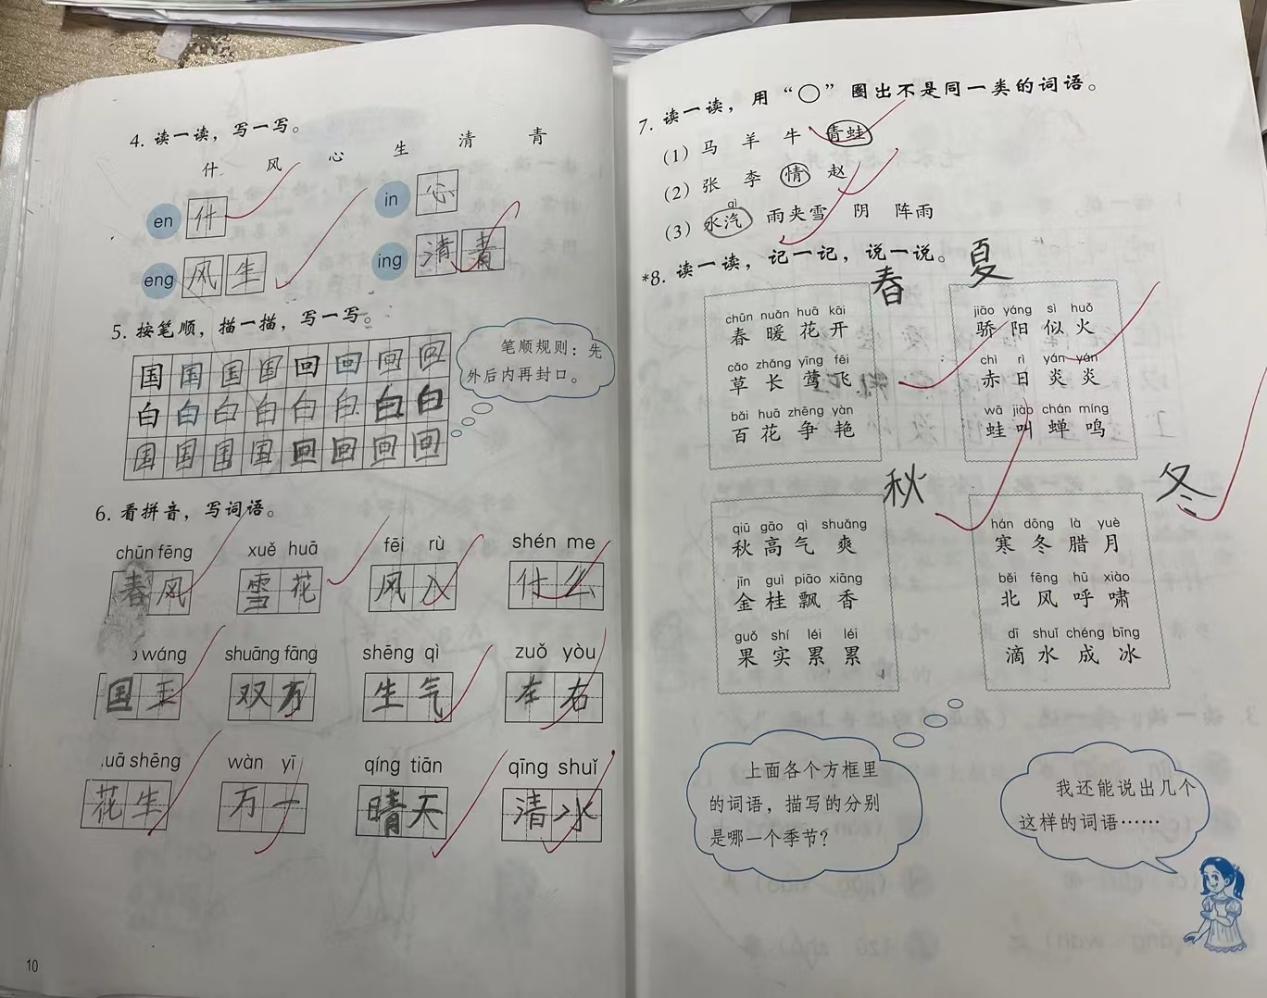 4. 读一读，写一写。
什 风 心 生 清 青
en 什 in 心
eng 风 生 ing 清 青
5. 按笔顺，描一描，写一写。
国 国 国 国 回 回 回 回
白 白 白 白 白 白 白 白
国 国 国 国 回 回 回 回
笔顺规则：先
外后内再封口。
6. 看拼音，写词语。
chūn fēng xuě huā fēi rù shén me
春风 雪花 风入 什么
wáng shuāng fāng shēng qì zuǒ yòu
国王 双方 生气 左右
uā shēng wàn yī qíng tiān qīng shuǐ
花生 万一 晴天 清水
10
7. 读一读，用“○”圈出不是同一类的词语。
(1) 马 羊 牛 青蛙
(2) 张 李 情 赵
qì
(3) 水汽 雨夹雪 阴 阵雨
*8. 读一读，记一记，说一说。
春 夏
chūn nuǎn huā kāi
春暖花开
cǎo zhǎng yīng fēi
草长莺飞
bǎi huā zhēng yàn
百花争艳
jiāo yáng sì huǒ
骄阳似火
chì rì yán yán
赤日炎炎
wā jiào chán míng
蛙叫蝉鸣
秋 冬
qiū gāo qì shuǎng
秋高气爽
jīn guì piāo xiāng
金桂飘香
guǒ shí léi léi
果实累累
hán dōng là yuè
寒冬腊月
běi fēng hū xiào
北风呼啸
dī shuǐ chéng bīng
滴水成冰
上面各个方框里
的词语，描写的分别
是哪一个季节？
我还能说出几个
这样的词语……